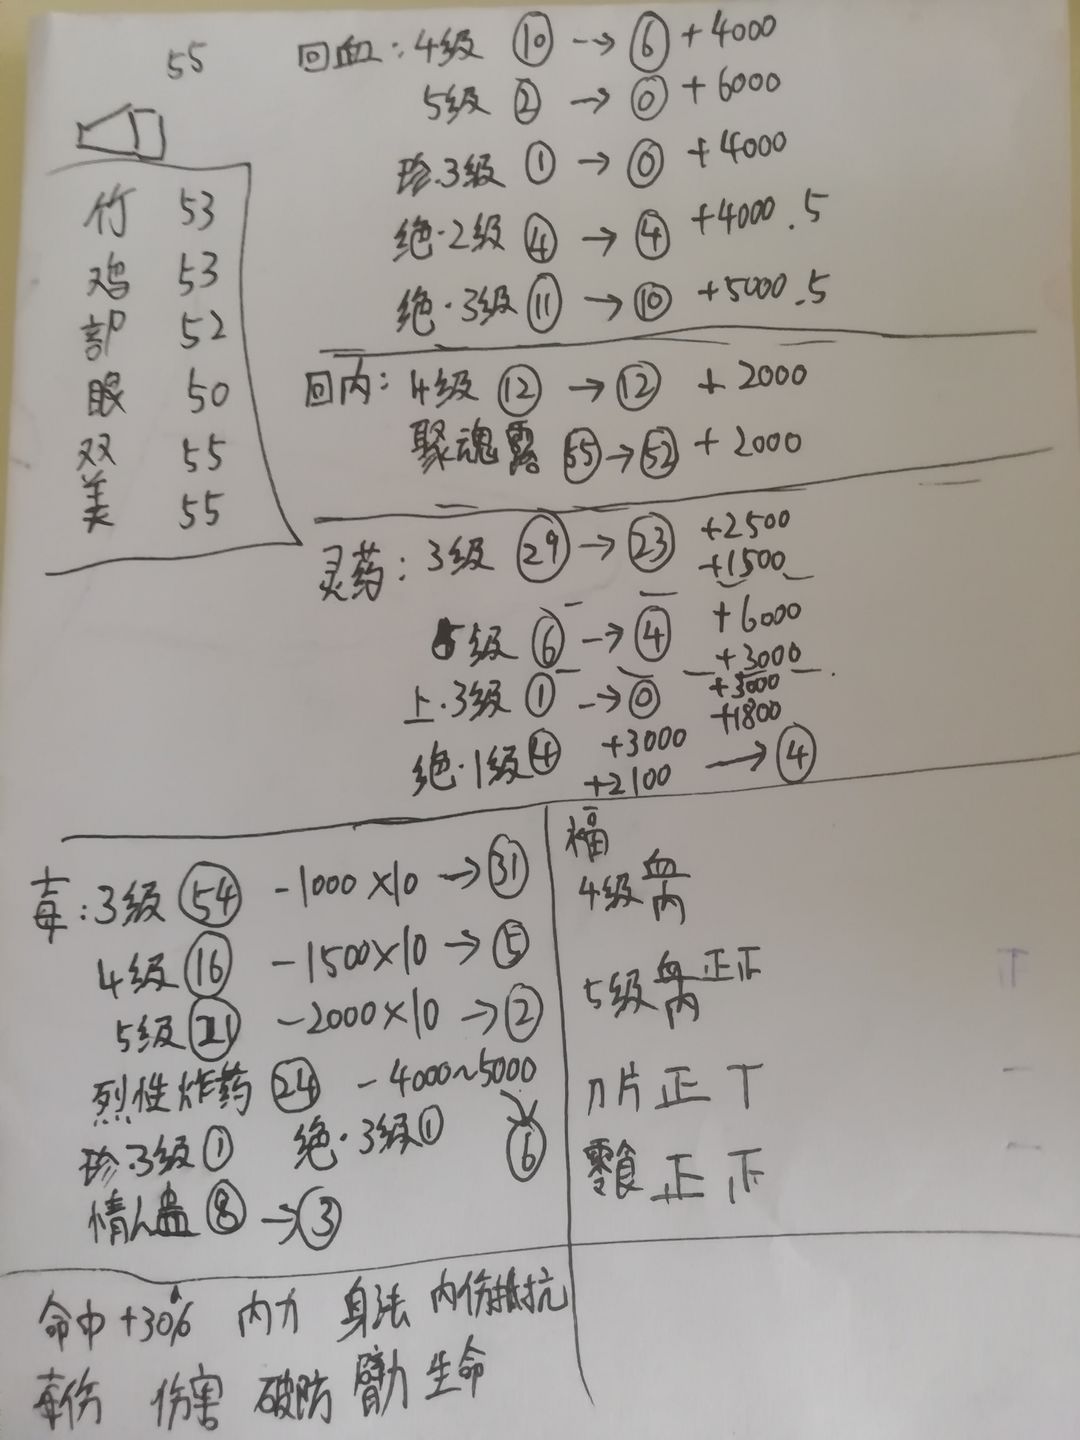 55
竹 53
鸡 53
部 52
眼 50
双 55
美 55
回血：4级 ⑩ → ⑥ +4000
5级 ② → ⓪ +6000
珍.3级 ① → ⓪ +4000
绝·2级 ④ → ④ +4000.5
绝·3级 ⑪ → ⑩ +5000.5
回内：4级 ⑫ → ⑫ +2000
聚魂露 55 → 52 +2000
灵药：3级 ㉙ → ㉓ +2500
+1500
5级 ⑥ → ④ +6000
+3000
上.3级 ① → ⓪ +3000
+1800
绝·1级 ④ +3000
+2100 → ④
毒：3级 54 -1000×10 → ㉛
4级 ⑯ -1500×10 → ⑤
5级 ㉑ -2000×10 → ②
烈性炸药 ㉔ -4000~5000
珍.3级 ① 绝·3级 ① → ⑥
情人蛊 ⑧ → ③
福
4级 血
内
5级 血 正正
内
刀片 正 丅
零食 正 正
命中+30% 内力 身法 内伤抵抗
毒伤 伤害 破防 臂力 生命